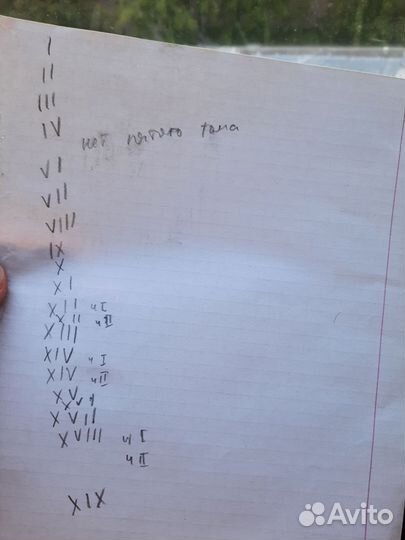 I
II
III
IV нет пятого тома
VI
VII
VIII
IX
X
XI
XII ч I
XII ч II
XIII
XIV ч I
XIV ч II
XV
XVI
XVII
XVIII ч I
ч II
XIX
Avito